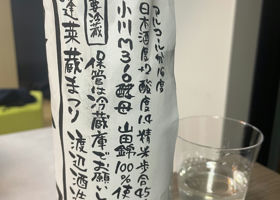 アルコール分16度
日本酒度+2 酸度1.4 精米歩合45
小川M310酵母 山田錦100%使
保管は冷蔵庫でお願いし
要冷蔵
蓬莱 蔵まつり 渡辺酒造